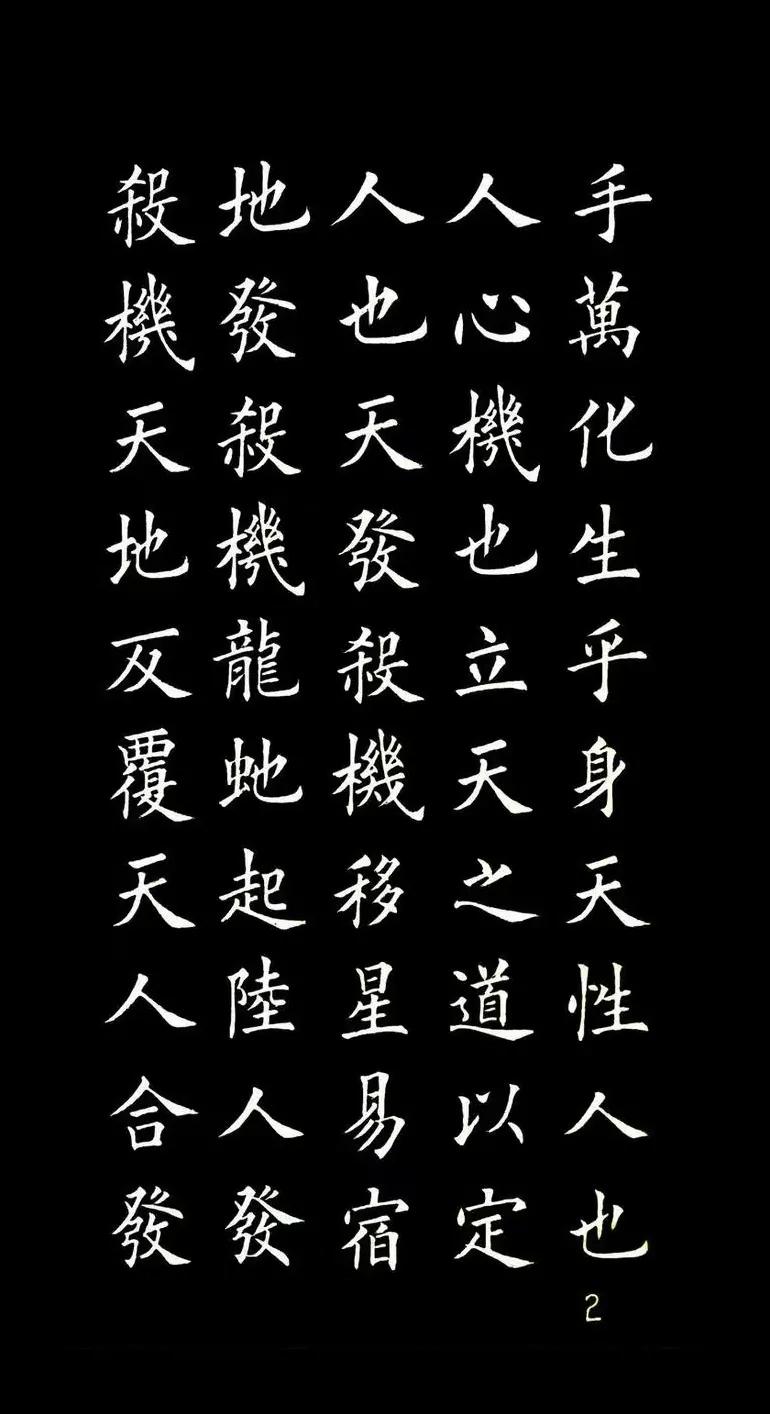 手萬化生乎身天性人也
人心機也立天之道以定
人也天發殺機移星易宿
地發殺機龍虵起陸人發
殺機天地反覆天人合發
2